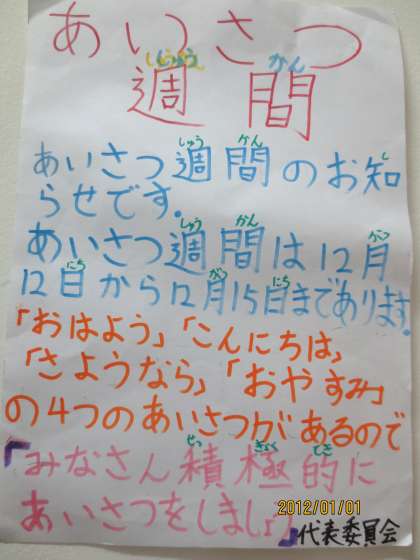 あいさつ
しゅう かん
週間
しゅう かん し
あいさつ週間のお知
らせです。
しゅう かん がつ
あいさつ週間は12月
にち がつ にち
12日から12月15日まであります。
「おはよう」「こんにちは」
「さようなら」「おやすみ」
の4つのあいさつがあるので
せっ きょく てき
「みなさん積極的に
あいさつをしましょう」
2012/01/01
代表委員会